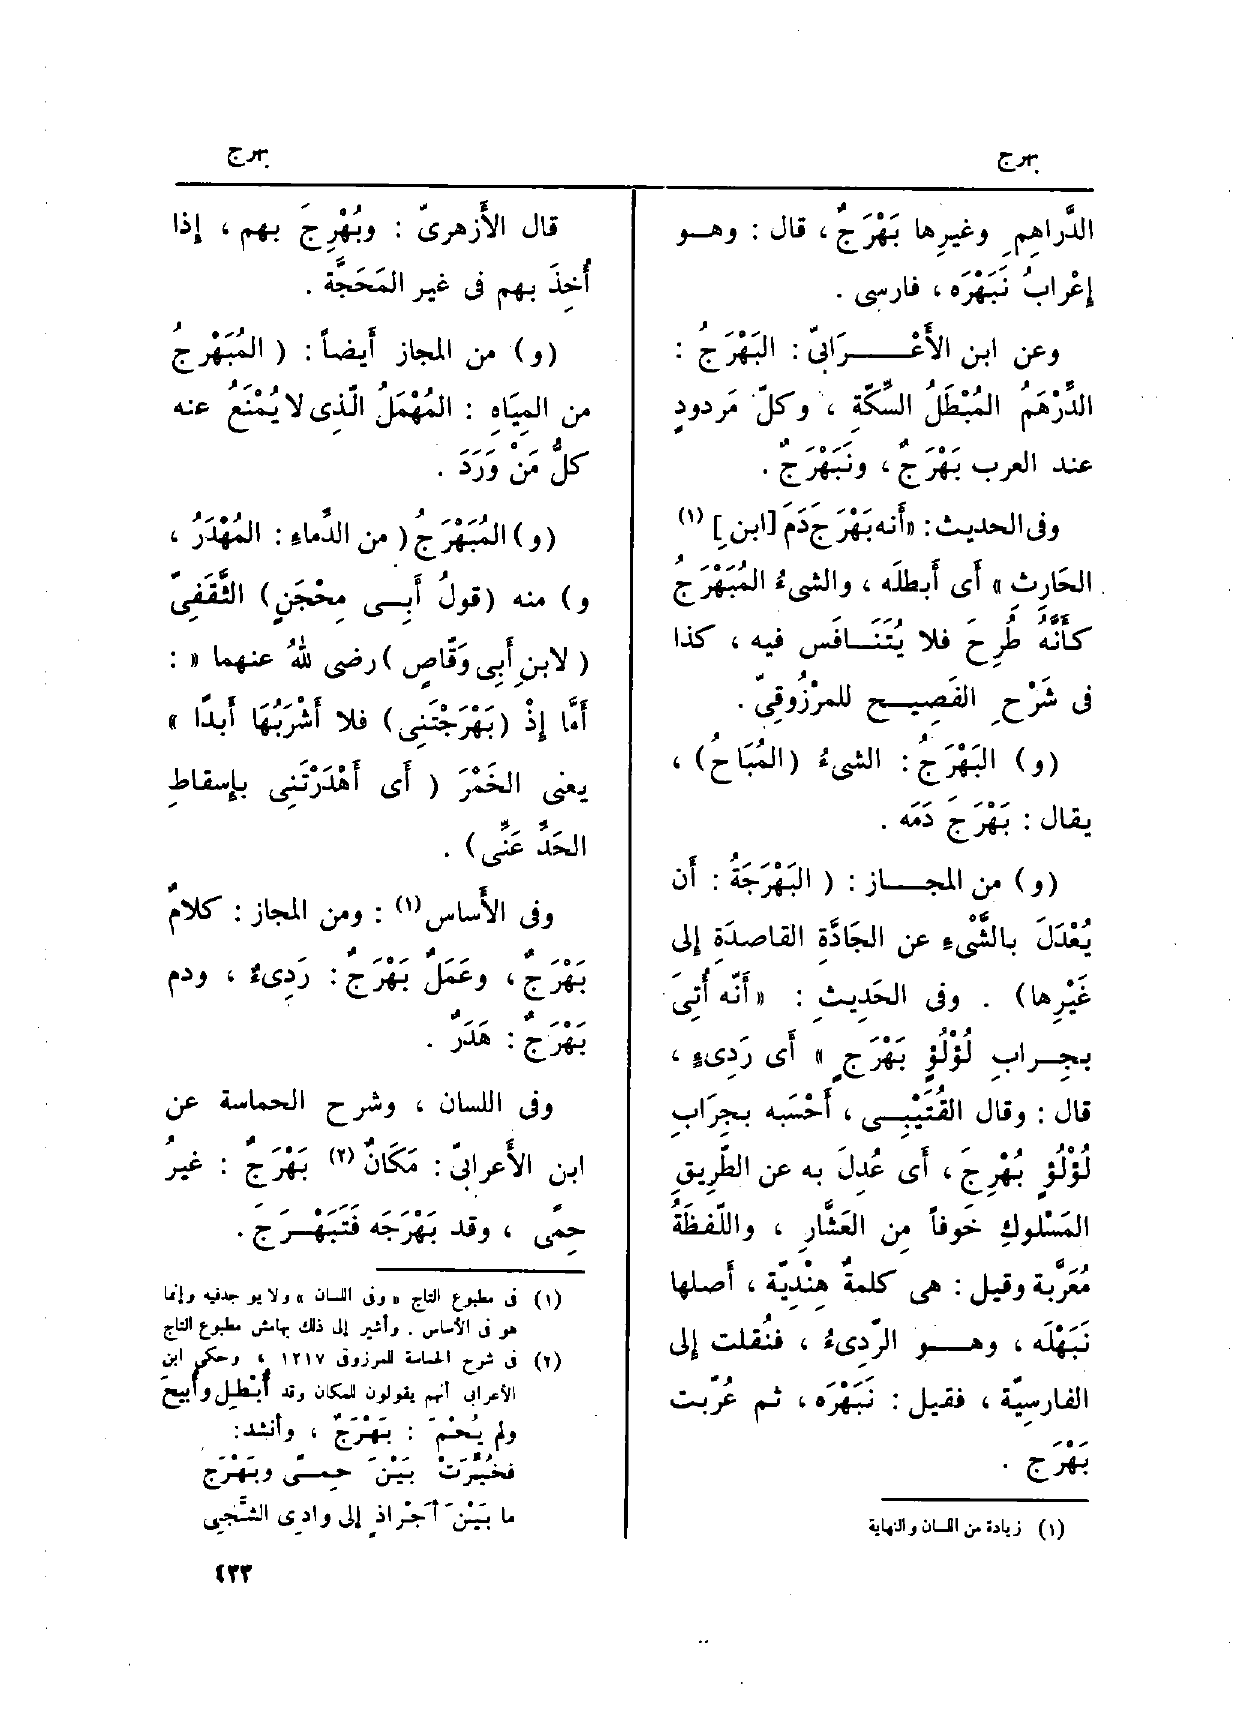 بهرج
بهرج
الدَّراهِمِ وغيرِها بَهْرَجٌ ، قال : وهـو
إِعْرابُ نَبَهْرَه ، فارسى .
وعن ابن الأَعْـــرَابىّ : البَهْرَجُ :
الدِّرْهَمُ المُبْطَلُ السِّكَّةِ ، وكلّ مَردودٍ
عند العرب بَهْرَجٌ ، ونَبَهْرَجٌ .
وفى الحديث : «أَنه بَهْرَجَ دَمَ [ابنِ] (١)
الحَارِث » أَى أَبطلَه ، والشىءُ المُبَهْرَجُ
كأَنَّهُ طُرِحَ فلا يُتَنَـافَس فيه ، كذا
فى شَرْحِ الفَصِيـح للمرْزُوقِىّ .
(و) البَهْرَجُ : الشىءُ (المُبَاحُ) ،
يقال : بَهْرَجَ دَمَه .
(و) من المجــاز : ( البَهْرَجَةُ : أَن
يُعْدَلَ بالشَّىءِ عن الجَادَّةِ القاصدَةِ إِلى
غَيْرِها) . وفى الحَدِيثِ : « أَنّه أُتِىَ
بجِـرابِ لُؤْلُؤٍ بَهْرَجٍ » أَى رَدِىءٍ ،
قال : وقال القُتَيْبِـى ، أَحْسَبه بجِرَابِ
لُؤْلُؤٍ بُهْرِجَ ، أَى عُدِلَ به عن الطَّرِيقِ
المَسْلوكِ خَوفاً مِن العَشَّارِ ، واللَّفظَةُ
مُعَرَّبة وقيل : هى كلمةٌ هِنْدِيّة ، أَصلها
نَبَهْلَه ، وهــو الرّدِىءُ ، فنُقلت إِلى
الفارسيّة ، فقيل : نَبَهْرَه ، ثم عُرّبت
بَهْرَج .
(١) زيادة من اللسان والنهاية
قال الأَزهرىّ : وبُهْرِجَ بهم ، إِذا
أُخِذَ بهم فى غير المَحَجَّة .
(و) من المجاز أَيضاً : ( المُبَهْرَجُ
من المِيَاهِ : المُهْمَلُ الَّذِى لا يُمْنَعُ عنه
كلُّ مَنْ وَرَدَ .
(و) المُبَهْرَجُ ( من الدِّماءِ : المُهْدَرُ ،
و) منه (قولُ أَبِـى مِحْجَنٍ) الثَّقَفِىّ
( لابنِ أَبِى وَقّاصٍ ) رضى اللهُ عنهما « :
أَمَّا إِذْ (بَهْرَجْتَنِى) فلا أَشْرَبُهَا أَبدًا »
يعنى الخَمْرَ ( أَى أَهْدَرْتَنِى بإِسقاطِ
الحَدِّ عَنِّى) .
وفى الأَساس (١) : ومن المجاز : كلامٌ
بَهْرَجٌ ، وعَمَلٌ بَهْرَجٌ : رَدِىءٌ ، ودم
بَهْرَجٌ : هَدَرٌ .
وفى اللسان ، وشرح الحماسة عن
ابن الأَعرابىّ : مَكَانٌ (٢) بَهْرَجٌ : غيرُ
حِمًى ، وقد بَهْرَجَه فَتَبَهْـرَجَ .
(١) فى مطبوع التاج « وفى اللسان » ولا يوجد فيه وإنما
هو فى الأساس . وأشير إلى ذلك بهامش مطبوع التاج
(٢) فى شرح الحماسة للمرزوقى ١٢١٧ ، وحكى ابن
الأعرابى أنهم يقولون للمكان وقد أُبْطِل وأُبيحَ
ولم يُحْمَ : بَهْرَجٌ ، وأنشد :
فخُيِّرَتْ بَيْنَ حِمـًى وبَهْرَجِ
ما بَيْنَ أَجْراذٍ إلى وادى الشَّجِى
٤٣٣